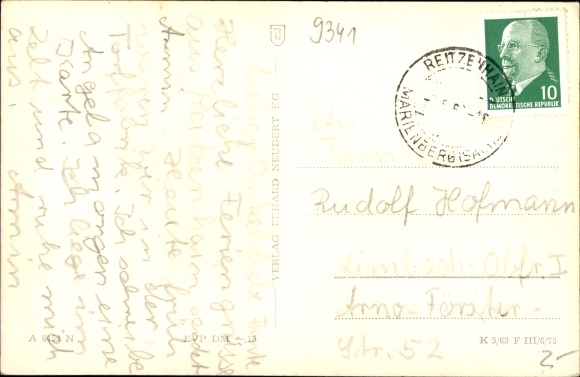 9341
REITZENHAIN
MARIENBERG (SACHS)
10
DEUTSCHE
DEMOKRATISCHE REPUBLIK
Herzliche Feriengrüße
aus Reitzenhain sendet
Armin. Heute früh
waren wir in der
Torffabrik. Ich schreibe
Angela morgen eine
Karte. Ich liege im
Zelt und ruhe mich
aus. Armin
VERLAG ERHARD NEUBERT KG
An
Fam
Rudolf Hofmann
Limbach-Obfr. I
Arno-Förster-
Str. 52
A 6454 N
EVP DM -.15
K 5/63 F III/6/75
2,-